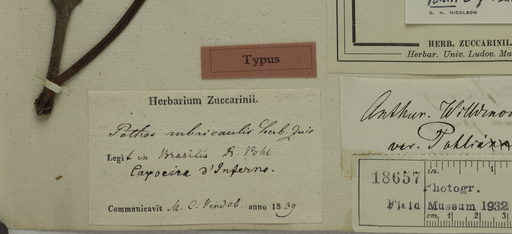 D. H. NICOLSON
HERB. ZUCCARINII.
Herbar. Univ. Ludov. Ma
Typus
Herbarium Zuccarinii.
Pothos rubricaulis herb.
Legit in Brasilia D. Pohl
Capoeira d'Inferno.
Communicavit M. C. Vindob. anno 1839
Anthur. Willdenow
var. Pohlian
18657
in.
Photogr.
Field Museum 1932
cm. 1 2 3